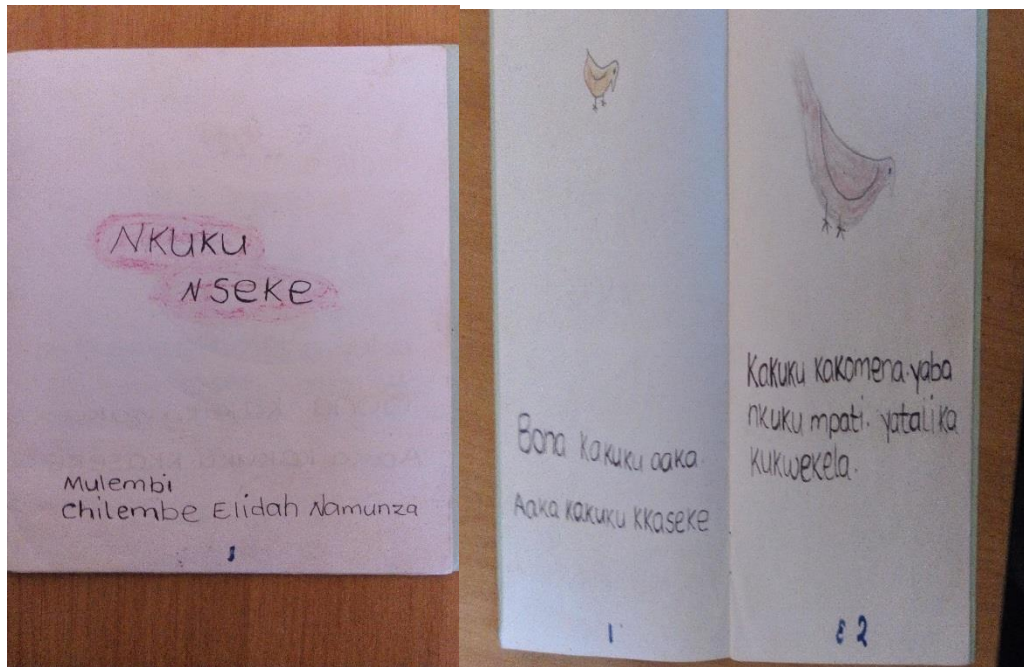 NKUKU
NSEKE
Mulembi
Chilembe Elidah Namunza
1
Bona kakuku aaka.
Aaka kakuku kkaseke
1
Kakuku kakomena. yaba
nkuku mpati. yatalika
kukwekela.
2